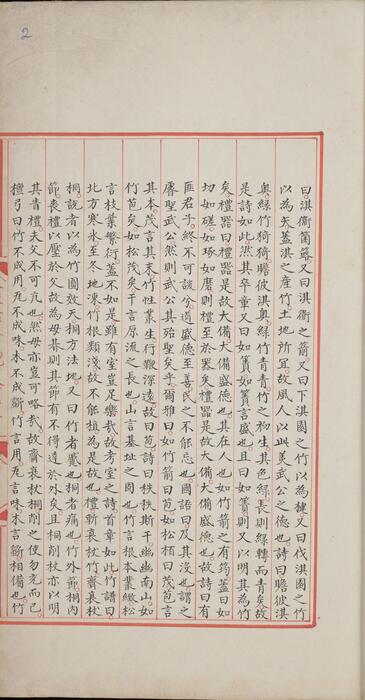 2
曰淇衛箘簬又曰淇衛之箭又曰下淇園之竹以為楗又曰伐淇園之竹
以為矢蓋淇之產竹土地所宜故風人以此美武公之德也詩曰瞻彼淇
奧綠竹猗猗瞻彼淇奧綠竹青青竹之初生其色綠長則綠轉而青矣故
是詩如此然其卒章又曰如簀如簀言盛也且曰如簀則又以明其為竹
矣禮器曰禮器是故大備大備盛德也其在人也如竹箭之有筠蓋曰如
切如磋如琢如磨則禮至於器矣禮器是故大備大備盛德也故詩曰有
匪君子終不可諼兮道盛德至善民之不能忘也國語曰及其沒也謂之
睿聖武公然則武公其殆聖矣乎爾雅曰如竹箭曰苞如松栢曰茂苞言
其本茂言其末竹性叢生行鞭深遠故曰苞詩曰秩秩斯干幽幽南山如
竹苞矣如松茂矣干言原流之長也山言基址之固也竹言根本叢緻松
言枝葉繁衍蓋不如是雖有室豈足樂哉故考室之詩首章如此竹譜曰
北方寒氷至冬地凍竹根類淺故不能植為是故也禮斬衰杖竹齊衰杖
桐說者以為竹圓效天桐方法地又曰竹者蹙也桐者痛也竹外節桐内
節喪禮以壓於父故為母朞則其節有不得達於外矣且桐削杖亦以明
其皆禮夫父不可亢也然母亦豈可略哉故齊衰杖桐削之使勿亢而已
檀弓曰竹不成用瓦不成味木不成斲竹言用瓦言味木言斲相備也竹